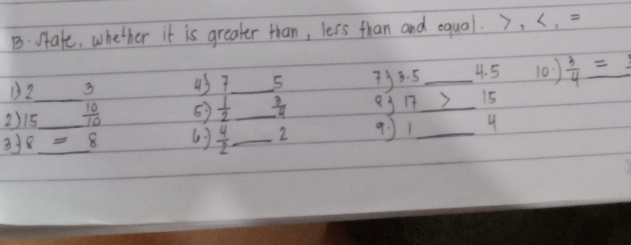 B. State, whether it is greater than, less than and equal. >, <, =
1) 2 ____ 3
2) 15 ____ 10/10
3) 8 = 8
4) 7 ____ 5
5) 1/2 ____ 3/4
6) 4/2 ____ 2
7) 3.5 ____ 4.5
8) 17 > 15
9.) 1 ____ 4
10.) 3/4 =